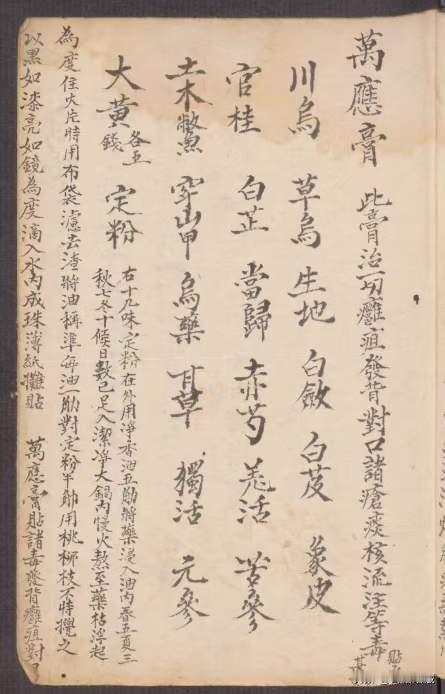 萬應膏 此膏治一切癰疽發背對口諸瘡痰核流注等毒 貼
川烏 草烏 生地 白斂 白芨 象皮
官桂 白芷 當歸 赤芍 羌活 苦參
土木鱉 穿山甲 烏藥 甘草 獨活 元參
大黃 各五錢 定粉 右十九味定粉在外用淨香油五觔將藥浸入油內春五夏三
秋七冬十候日數已足入潔淨大鍋內慢火熬至藥枯浮起
為度住火片時用布袋濾去渣將油稱準每油一觔對定粉半觔用桃柳枝不時攪之
以黑如漆亮如鏡為度滴入水內成珠薄紙攤貼 萬應膏貼諸毒發背癰疽對口